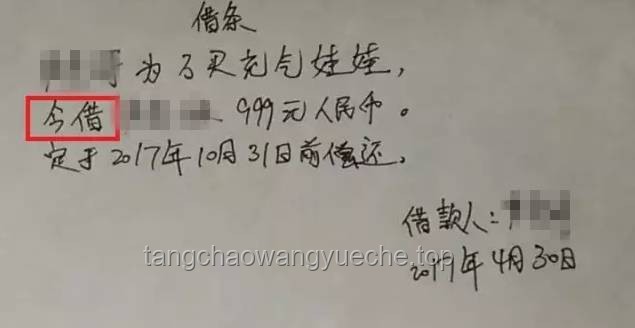 借条
为了买充气娃娃,
今借 999元人民币。
定于2017年10月31日前偿还.
借款人:
tangchaowangyueche.top
2017年4月30日